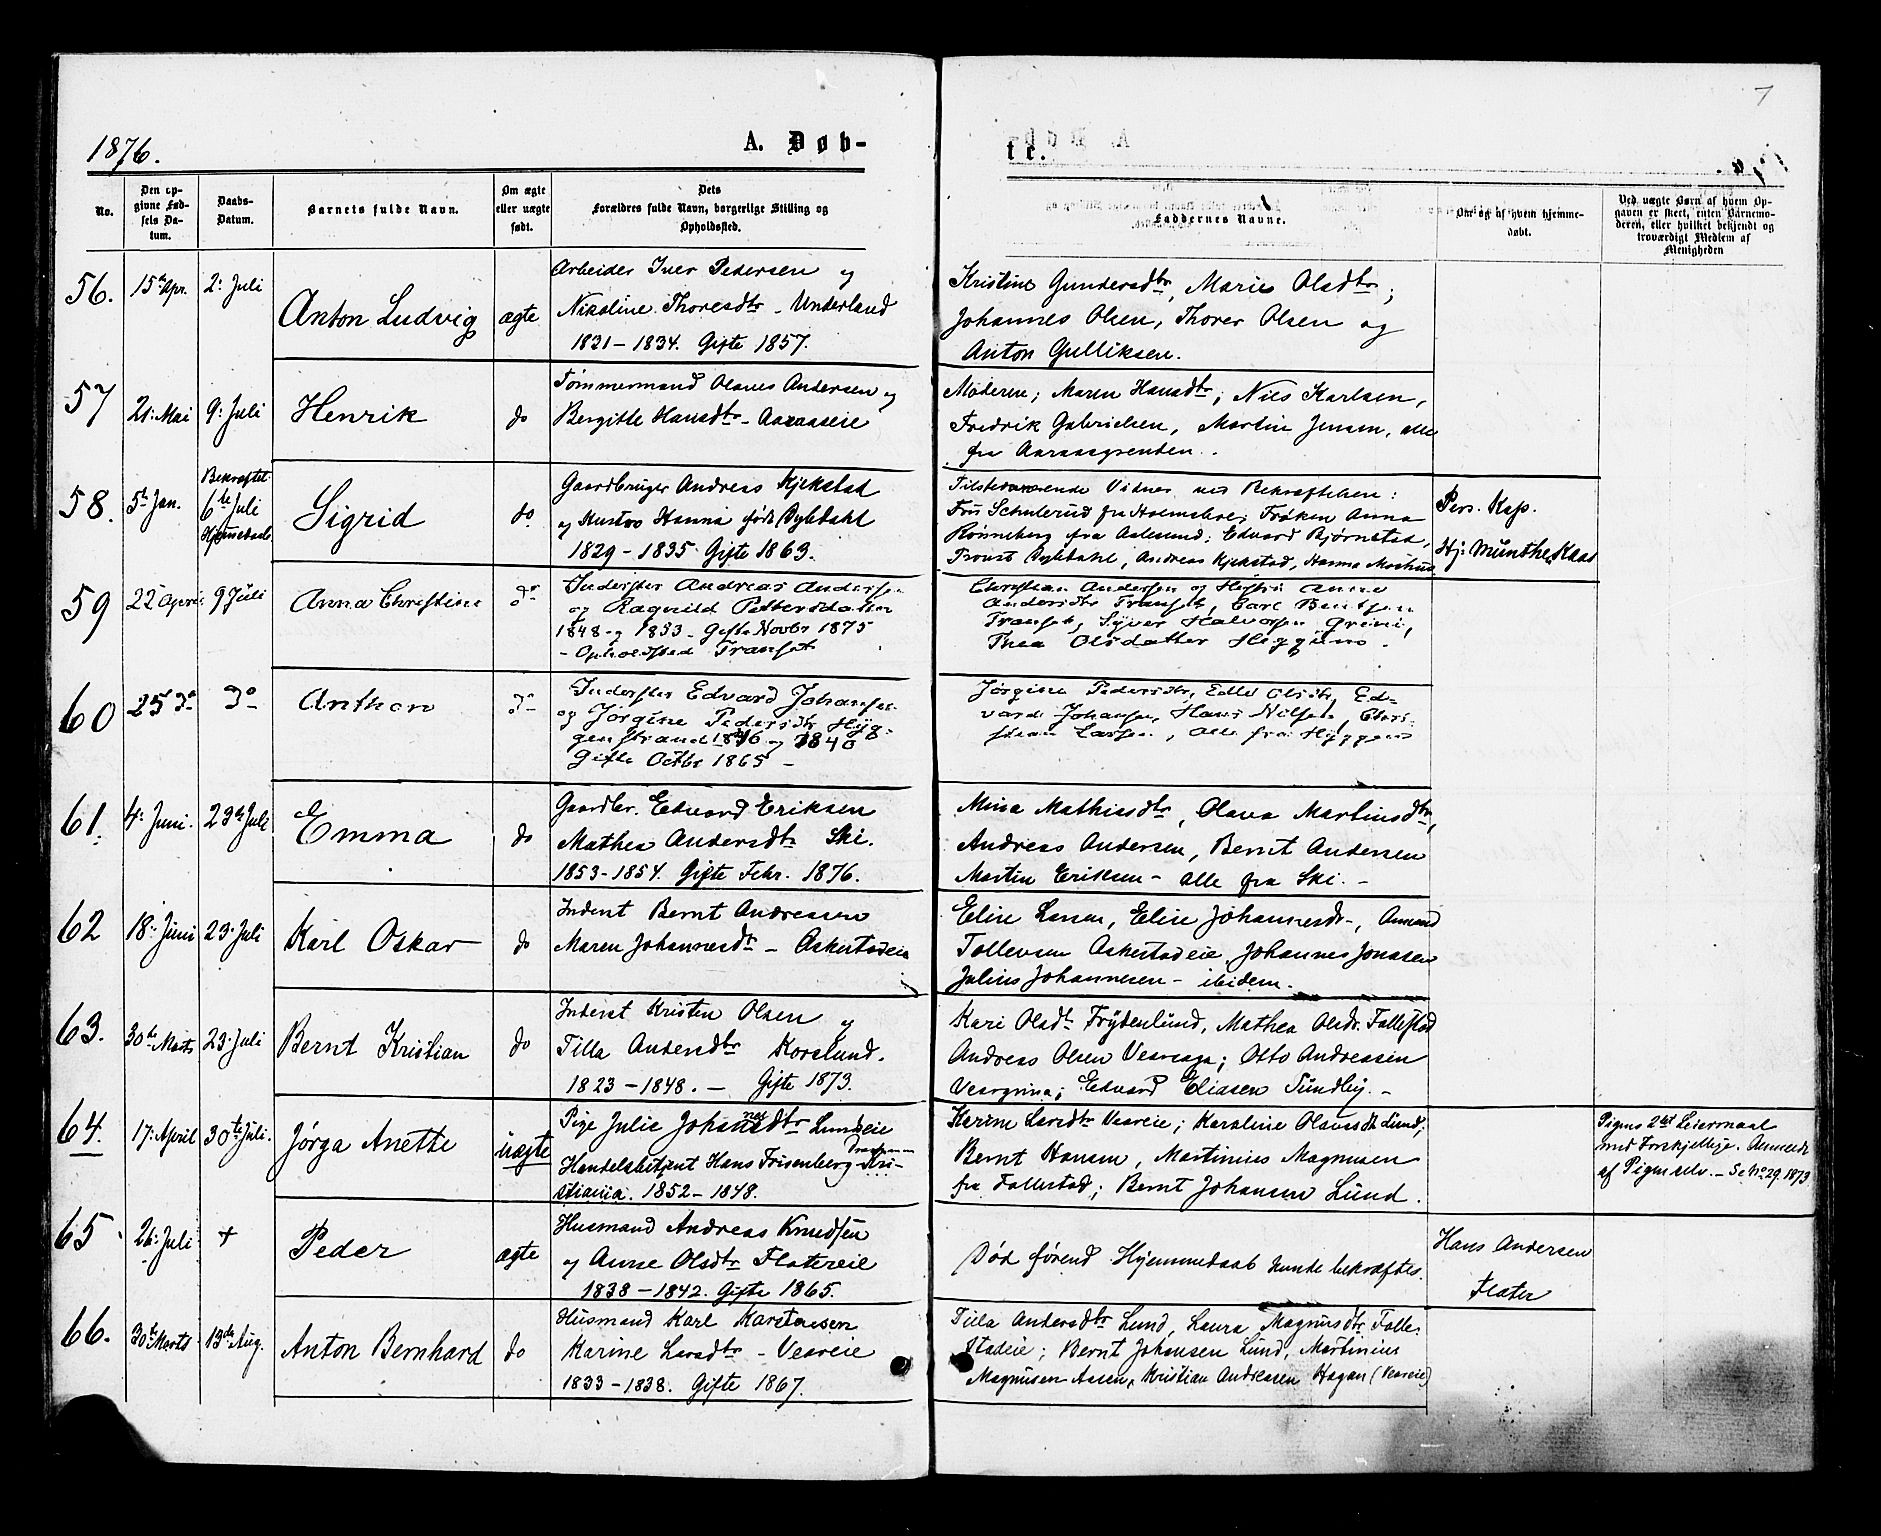 7
1876.
A. Døb-
te.
No.
Den op-
givne Fød-
sels Da-
tum.
Daabs-
Datum.
Barnets fulde Navn.
Om ægte
eller uægte
født.
Dets
Forældres fulde Navn, borgerlige Stilling og
Opholdssted.
Faddernes Navne.
Om og af hvem hjemme-
døbt.
Ved uægte Børn af hvem Op-
gaven er skeet, enten Barnemo-
deren, eller hvilket bekjendt og
troværdigt Medlem af
Menigheden
56.
15de Apr.
2: Juli
Anton Ludvig
ægte
Arbeider Iver Pedersen og
Nikoline Thoresdtr - Underland
1831 - 1834. Gifte 1857.
Kristine Gundersdtr, Maries Olsdtr;
Johannes Olsen, Thorer Olsen og
Anton Gulliksen.
57
21: Mai
9: Juli
Henrik
do
Tømmermand Olaves Andersen og
Bergitte Hansdtr - Aaraaseie
Moderen; Maren Hansdtr; Nils Karlsen,
Fredrik Gabrielsen, Martin Jensen, alle
fra Aaraasgrenden.
58.
5te Jan.
Bekræftet
6te Juli
Hjemmedaab
Sigrid
do
Gaardbruger Andreas Kjekstad
og Hustro Hanna født Dyledahl
1829 - 1835 Gifte 1863.
Tilstedeværende Vidner ved Bekræftelsen:
Fru Schulerud fra Holmsbo; Frøken Anna
Rønneberg fra Aalesund; Edvard Bjørnstad,
Provst Dybdahl, Andreas Kjekstad, Hanna
Pers. Kap.
Hj: Munthe Kaas
59
22 April
9 Juli
Anna Christine
do
Inderster Andreas Andersen
og Ragnild Pettersdatter
1848 og 1853 - Gifte Novbr 1875
- Opholdsted Transet
Christian Andersen og Hustru Anne
Andersdtr Transet, Carl Berntsen
Transet, Syver Halvorsen Grini,
Thea Olsdatter Hyggens.
60
25 do
do
Anthon
do
Inderster Edvard Johansen
og Jørgine Pedersdtr Hyg-
genstrand 1836 og 1840
Gifte Octbr 1865 -
Jørgine Pedersdtr, Edle Olsdtr, Ed-
vard Johansen, Hans Nilsen, Chri-
stian Larsen, alle fra Hyggen
61.
4: Juni.
23de Juli
Emma
do
Gaardbr. Edvard Eriksen
Mathea Andersdtr Ski.
1853 - 1854. Gifte Febr. 1876.
Mina Mathiasdtr, Olava Martinsdtr,
Andreas Andersen, Bernt Andersen
Martin Eriksen - alle fra Ski. -
62
18: Juni
23: Juli
Karl Oskar
do
Inderst Bernt Andreasen
Maren Johannesdtr - Askestadeie
Elise Larsen, Elise Johannesdtr, Amund
Tollevsen Askestadeie, Johannes Jonasen
Julius Johannesen - ibidem.
63.
30te Marts
23: Juli
Bernt Kristian
do
Inderst Kristen Olsen og
Tilla Andersdtr Korslund.
1823 - 1848. - Gifte 1873.
Kari Olsdtr Frydenlund, Mathea Olsdr. Follestad
Andreas Olsen Vearhaga; Otto Andreasen
Veargrina; Edvard Eliasen Sundby. -
64.
17: April
30te Juli.
Jørga Anette
uægte
Pige Julie Johannesdtr Lundeie
Handelsbetjent Hans Frisenberg Drammen Kri-
stiania. 1852 - 1848.
Karine Larsdtr Veareie; Karoline Olausdtr Lund;
Bernt Hansen, Martinius Magnusen
fra Follestad; Bernt Johansen Lund.
Pigens 2det Leiermaal
med Forskjellige. Anmeldt
af Pigen selv. - Se No 29. 1873
65
26: Juli
+
Peder
ægte
Husmand Andreas Knudsen
og Anne Olsdtr Flatereie
1838 - 1842. Gifte 1865.
Død førend Hjemmedaab kunde bekræftes.
Hans Andersen
Flater
66.
30te Marts
13de Aug.
Anton Bernhard
do
Husmand Karl Karstensen
Karine Larsdtr - Veareie
1833 - 1838. Gifte 1867.
Tilla Andersdtr Lund, Laura Magnusdtr Folle-
stadeie; Bernt Johansen Lund, Martinius
Magnusen Aasen, Kristian Andreasen Hagan (Veareie)